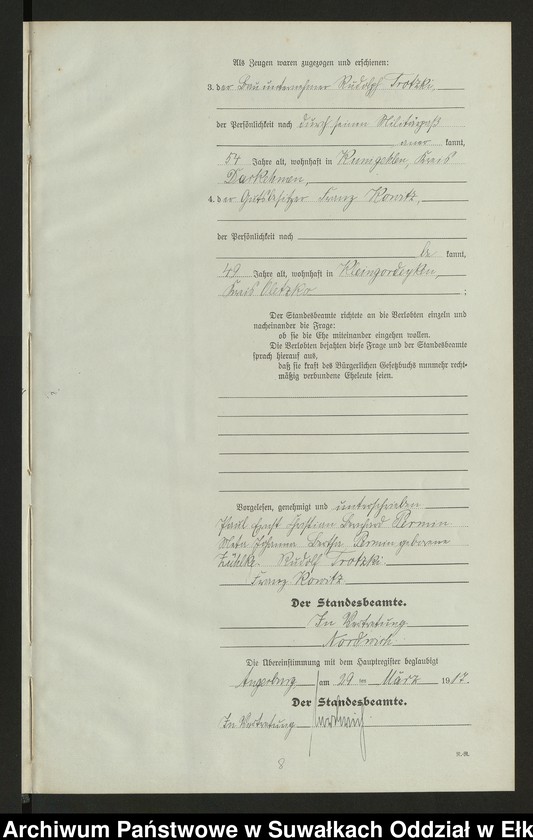 Als Zeugen waren zugezogen und erschienen:
3. der Bauunternehmer Rudolph Trotzki
der Persönlichkeit nach durch seinen Militärpaß
aner kannt,
54 Jahre alt, wohnhaft in Kreis
Darkehmen,
4. der Gutsbesitzer Franz Kowitz,
der Persönlichkeit nach
be kannt,
49 Jahre alt, wohnhaft in
Kreis Oletzko ;
Der Standesbeamte richtete an die Verlobten einzeln und
nacheinander die Frage:
ob sie die Ehe miteinander eingehen wollen.
Die Verlobten bejahten diese Frage und der Standesbeamte
sprach hierauf aus,
daß sie kraft des Bürgerlichen Gesetzbuchs nunmehr recht-
mäßig verbundene Eheleute seien.
Vorgelesen, genehmigt und unterschrieben
Paul Ernst Christian Bernhard Permin
Meta Johanna Bertha Permin geborene
Zühlke. Rudolf Trotzki
Franz Kowitz
Der Standesbeamte.
In Vertretung
Die Übereinstimmung mit dem Hauptregister beglaubigt
Angerburg am ten März 19
Der Standesbeamte.
In Vertretung
8
Archiwum Państwowe w Suwałkach Oddział w Ełku